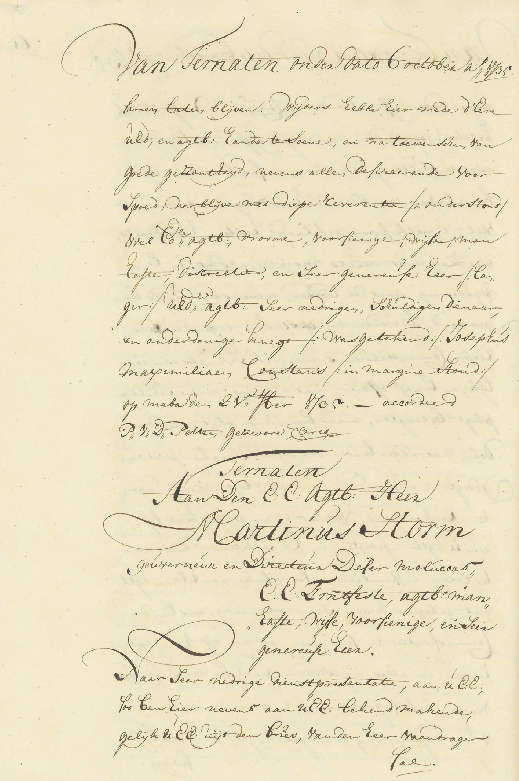 Van Ternaten onder dato 6 october A:o 1735
komen te blijven. Wijders hebbe hier mede d'Eere
UEd: en agtb: handen te kussen, en na toewensching van
goede gesontheijd, nevens allen desireerende voor-
spoed, verblijve met diepe reverentie /: onderstond /
Wel Ed: agtb:, vroome, voorsienige, wijse, man-
hafte, discrete, en seer genereuse Heer /: la-
ger :/ UEd: agtb: seer nedrigen, schuldigen dienaar,
en onderdanige knegt /: was geteekend :/ Josephus
Maximiliaan Constans /: in margine stond :/
op maba den 2 1735. — accordeerd
P. V. D. gesworen Clercq
Ternaten
Aan Den E. E. Agtb: Heer
Martinus Storm
gouverneur en Directeur Deser moluccos
E. E. Erntfeste, agtb: man-
hafte, wijse, voorsienige, en seer
genereuse Heer.
Naar seer nedrige dienst presentatie, aan UEE:
soo ben hier nevens aan UEE bekend makende,
gelijk UEE uijt den brief, van den Heer vaandrager
sal